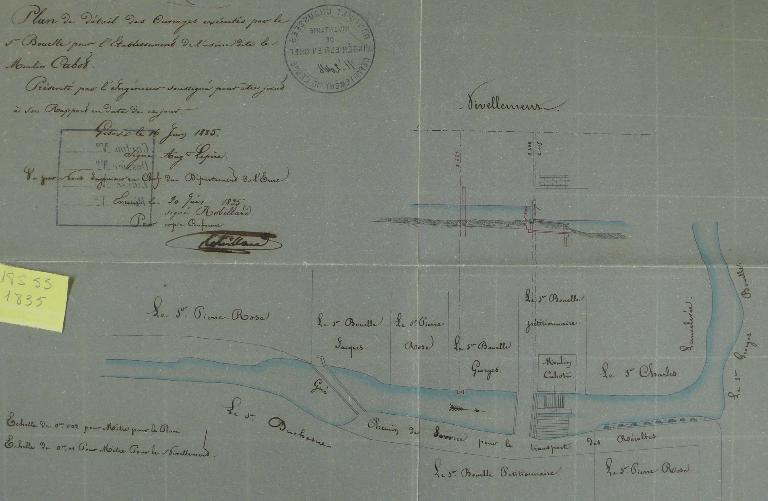 Plan de détail des Ouvrages exécutés par le
Sr Bouelle pour l'Etablissement de l'usine dite le
Moulin Cabot.
Présenté par l'Ingénieur soussigné pour être joint
à son Rapport en date de ce jour
le 16 Juin 1835.
Signé Augte Lepère
Vu par Nous Ingénieur en Chef du Département de l'Eure
Evreux le 20 Juin 1835
signé Robillard
Pour copie Conforme
Robillard
Nivellement.
19S 55
1835
Le Sr Pierre Rose
Le Sr Bouelle
Jacques
Le Sr Pierre
Rose
Le Sr Bouelle
Georges
Le Sr Bouelle
pétitionnaire
Moulin
Cabot
Le Sr Charles
Lancelevée
Le Sr Georges Bouelle
Gué
Le Sr Duchesne
Chemin de Service pour le transport des Récoltes
Le Sr Bouelle Pétitionnaire
Le Sr Pierre Rose
Echelle de 0m,002 pour Mètre pour le Plan
Echelle de 0m,01 Pour Mètre Pour le Nivellement